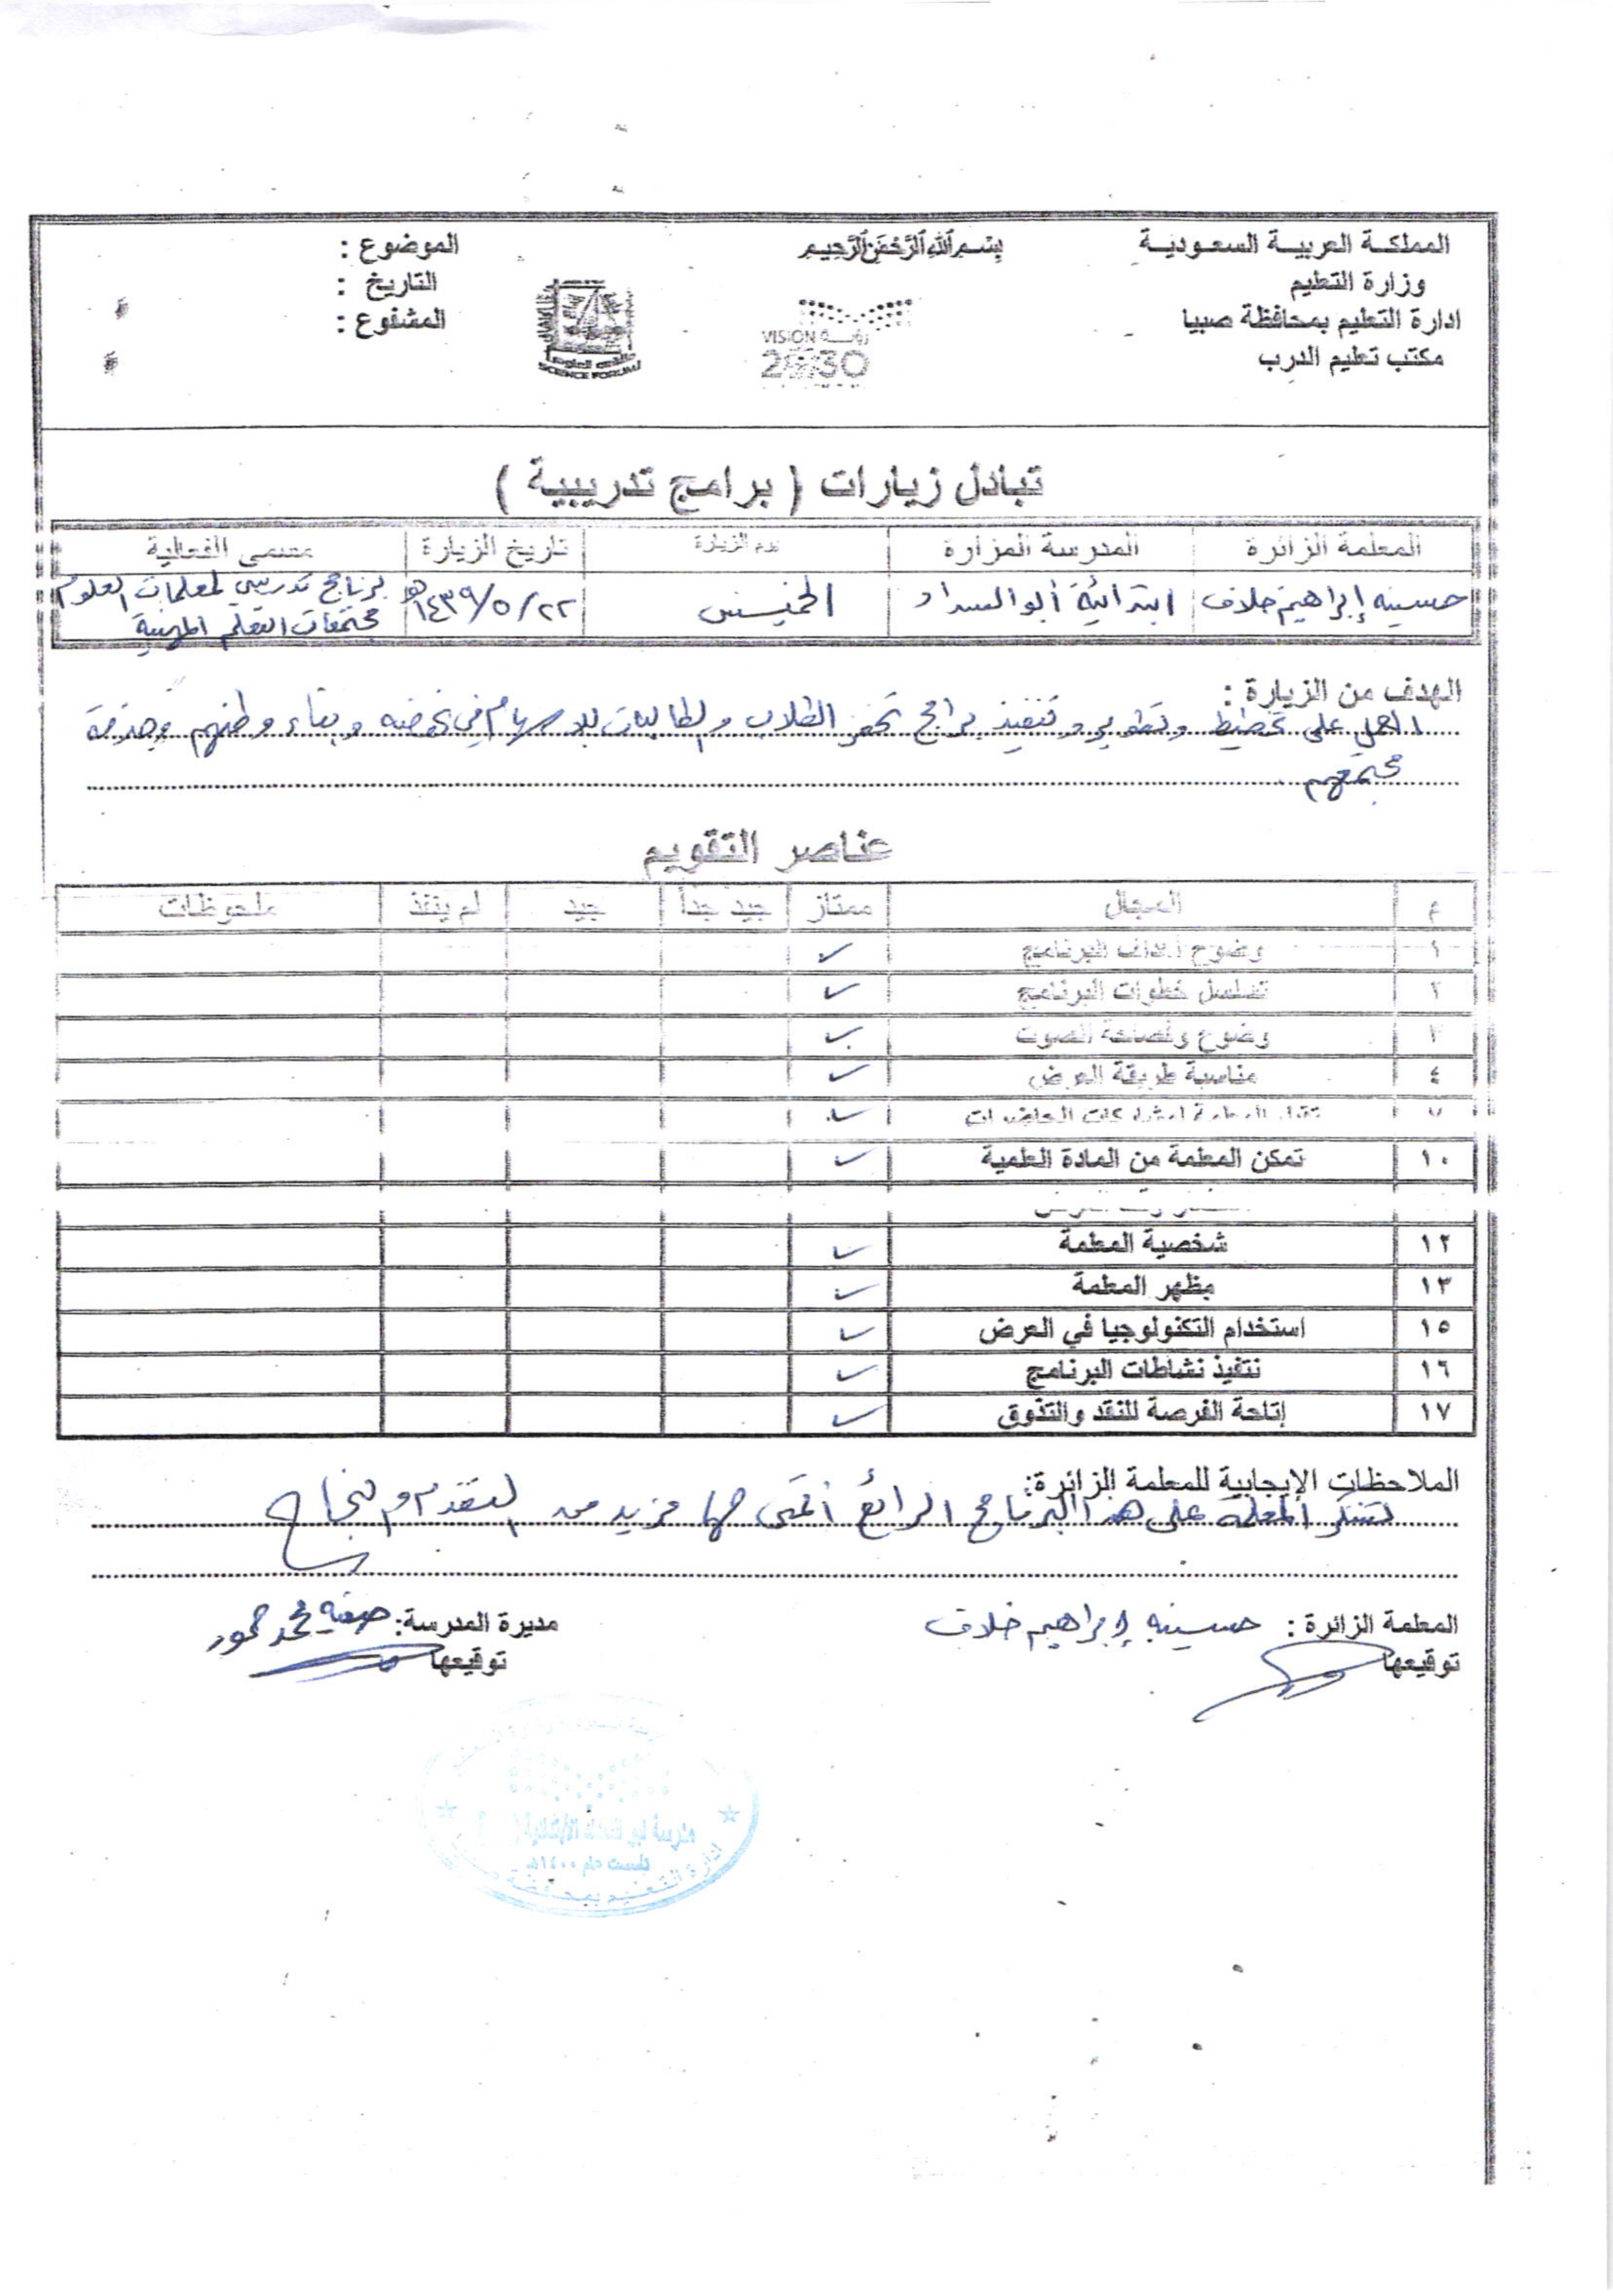 المملكة العربية السعودية
وزارة التعليم
ادارة التعليم بمحافظة صبيا
مكتب تعليم الدرب
بسم الله الرحمن الرحيم
VISION رؤية
2030
SCIENCE FORUM
الموضوع :
التاريخ :
المشفوع :
تبادل زيارات ( برامج تدريبية )
المعلمة الزائرة | المدرسة المزارة | يوم الزيارة | تاريخ الزيارة | مسمى الفعالية
حسينه إبراهيم خلاف | ابتدائية أبو السداد | الخميس | ١٤٣٩/٥/٢٢هـ | برنامج تدريبي لمعلمات العلوم
مجتمعات التعلم المهنية
الهدف من الزيارة :
العمل على تخطيط وتطوير وتنفيذ برامج تحفز الطلاب والطالبات للإسهام في نهضه وبناء وطنهم وخدمة
مجتمعهم
عناصر التقويم
م | المجال | ممتاز | جيد جداً | جيد | لم ينفذ | ملحوظات
١ | وضوح أهداف البرنامج | ✓
٢ | تسلسل خطوات البرنامج | ✓
٣ | وضوح وفصاحة الصوت | ✓
٤ | مناسبة طريقة العرض | ✓
✓
١٠ | تمكن المعلمة من المادة العلمية | ✓
١٢ | شخصية المعلمة | ✓
١٣ | مظهر المعلمة | ✓
١٥ | استخدام التكنولوجيا في العرض | ✓
١٦ | تنفيذ نشاطات البرنامج | ✓
١٧ | إتاحة الفرصة للنقد والتذوق | ✓
الملاحظات الإيجابية للمعلمة الزائرة:
تشكر المعلمة على هذا البرنامج الرائع أتمنى لها مزيد من التقدم والنجاح
المعلمة الزائرة : حسينه إبراهيم خلاف
توقيعها
مديرة المدرسة: محمد حمود
توقيعها
الابتدائية
تأسست عام ١٤٠٠هـ
ادارة التعليم بمحافظة